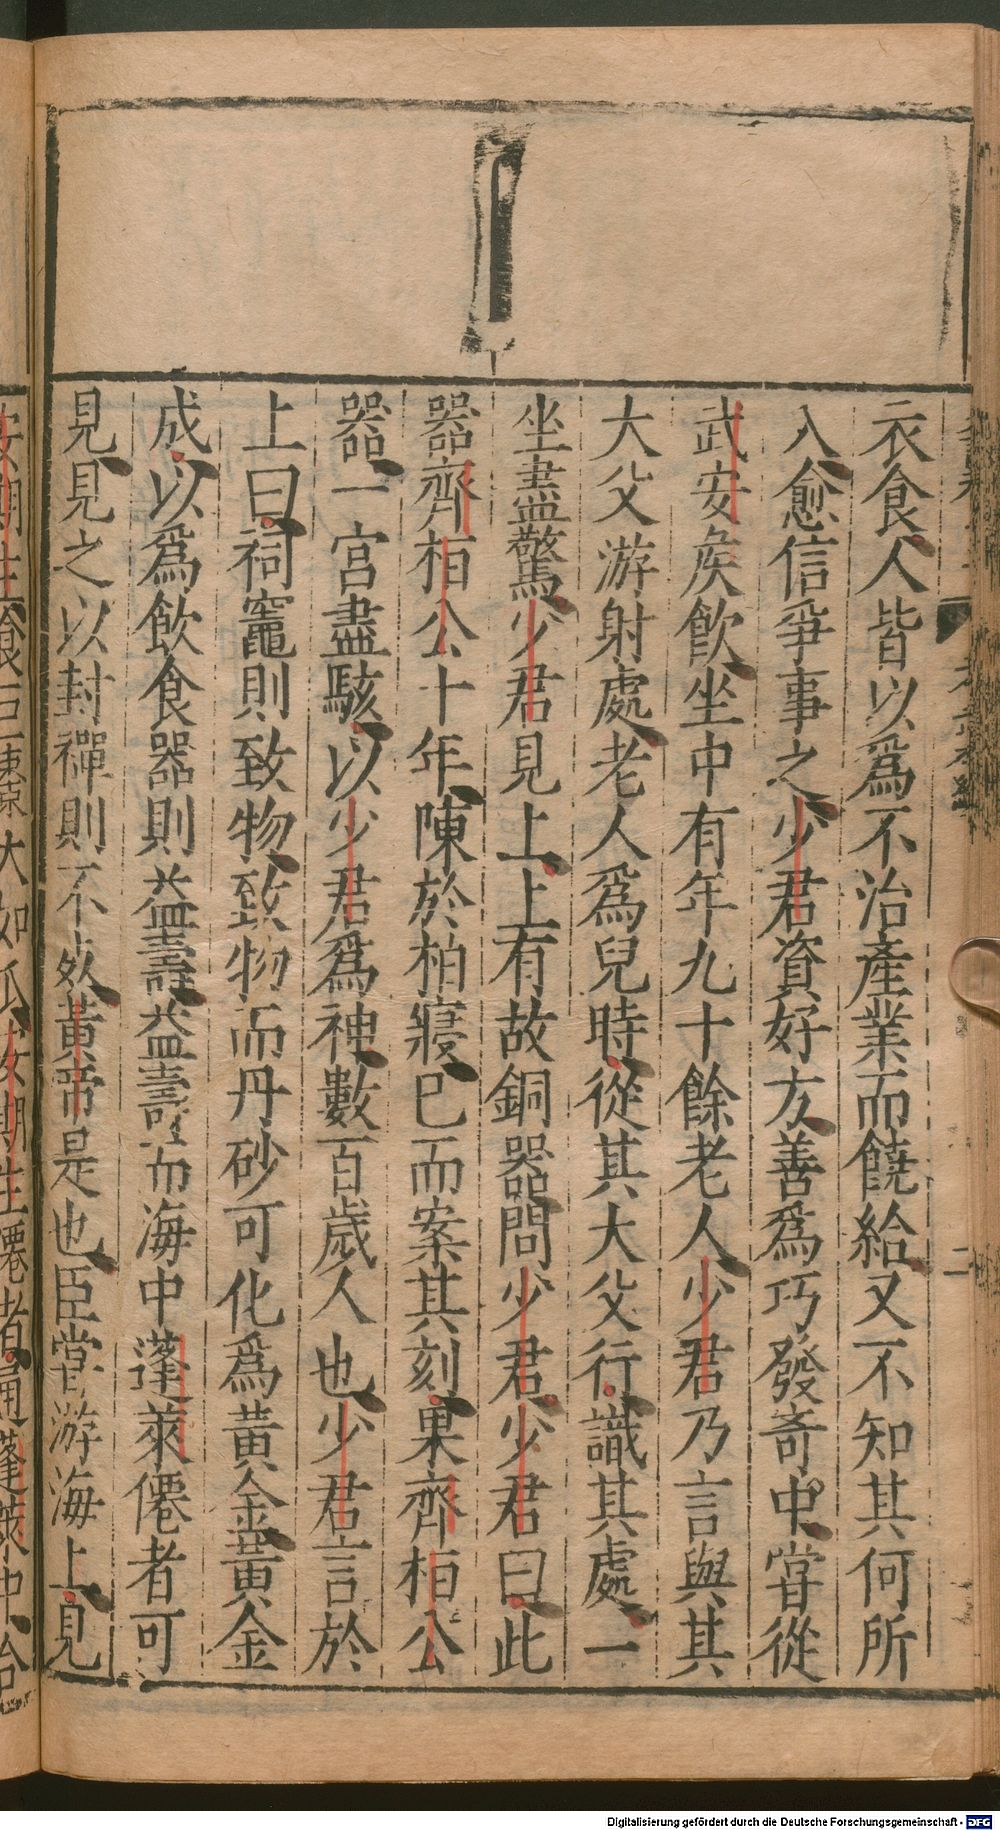 衣食人皆以爲不治產業而饒給又不知其何所
人愈信爭事之少君資好方善爲巧發奇中嘗從
武安矦飲坐中有年九十餘老人少君乃言與其
大父游射處老人爲兒時從其大父行識其處一
坐盡驚少君見上上有故銅器問少君少君曰此
器齊桓公十年陳於柏寢已而案其刻果齊桓公
器一宮盡駭以少君爲神數百歲人也少君言於
上曰祠竈則致物致物而丹砂可化爲黃金黃金
成以爲飲食器則益壽益壽而海中蓬萊僊者可
見見之以封禪則不死黃帝是也臣嘗游海上見
安期生食巨棗大如瓜安期生僊者通蓬萊中合
Digitalisierung gefördert durch die Deutsche Forschungsgemeinschaft - DFG